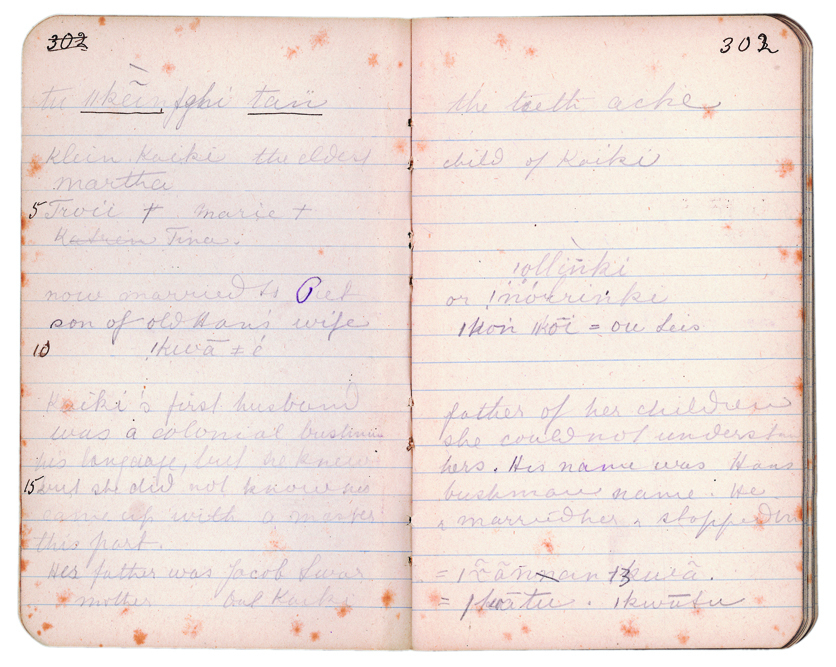 302
tu ǁkẽin ʃghi taïï
Klein Kaiki the eldest
martha
5 Troii + marie +
Katrien Tina.
now married to Piet
son of old Hans wife
10
Kaiki's first husband
was a colonial bushman
his language, but he knew
15 but she did not know his
came up with a master
this part.
Her father was Jacob Swar
mother Oul Kaiki
303
the teeth ache
child of Kaiki
or
= ou Leis
father of her children
she could not understan
hers. His name was Hans
bushman name. He
married her stopped in